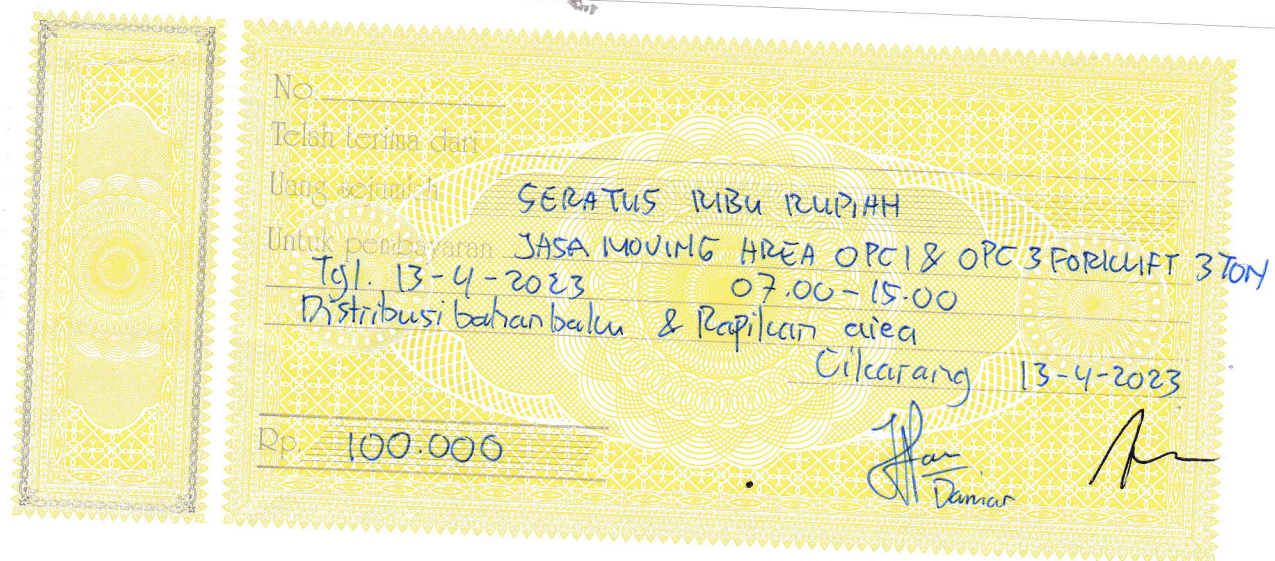 No
Telah terima dari
Uang sejumlah SERATUS RIBU RUPIAH
Untuk pembayaran JASA MOVING AREA OPC 1 & OPC 3 FORKLIFT 3 TON
Tgl. 13-4-2023 07.00-15.00
Distribusi bahan baku & Rapikan area
Cikarang 13-4-2023
Rp. 100.000
Damar